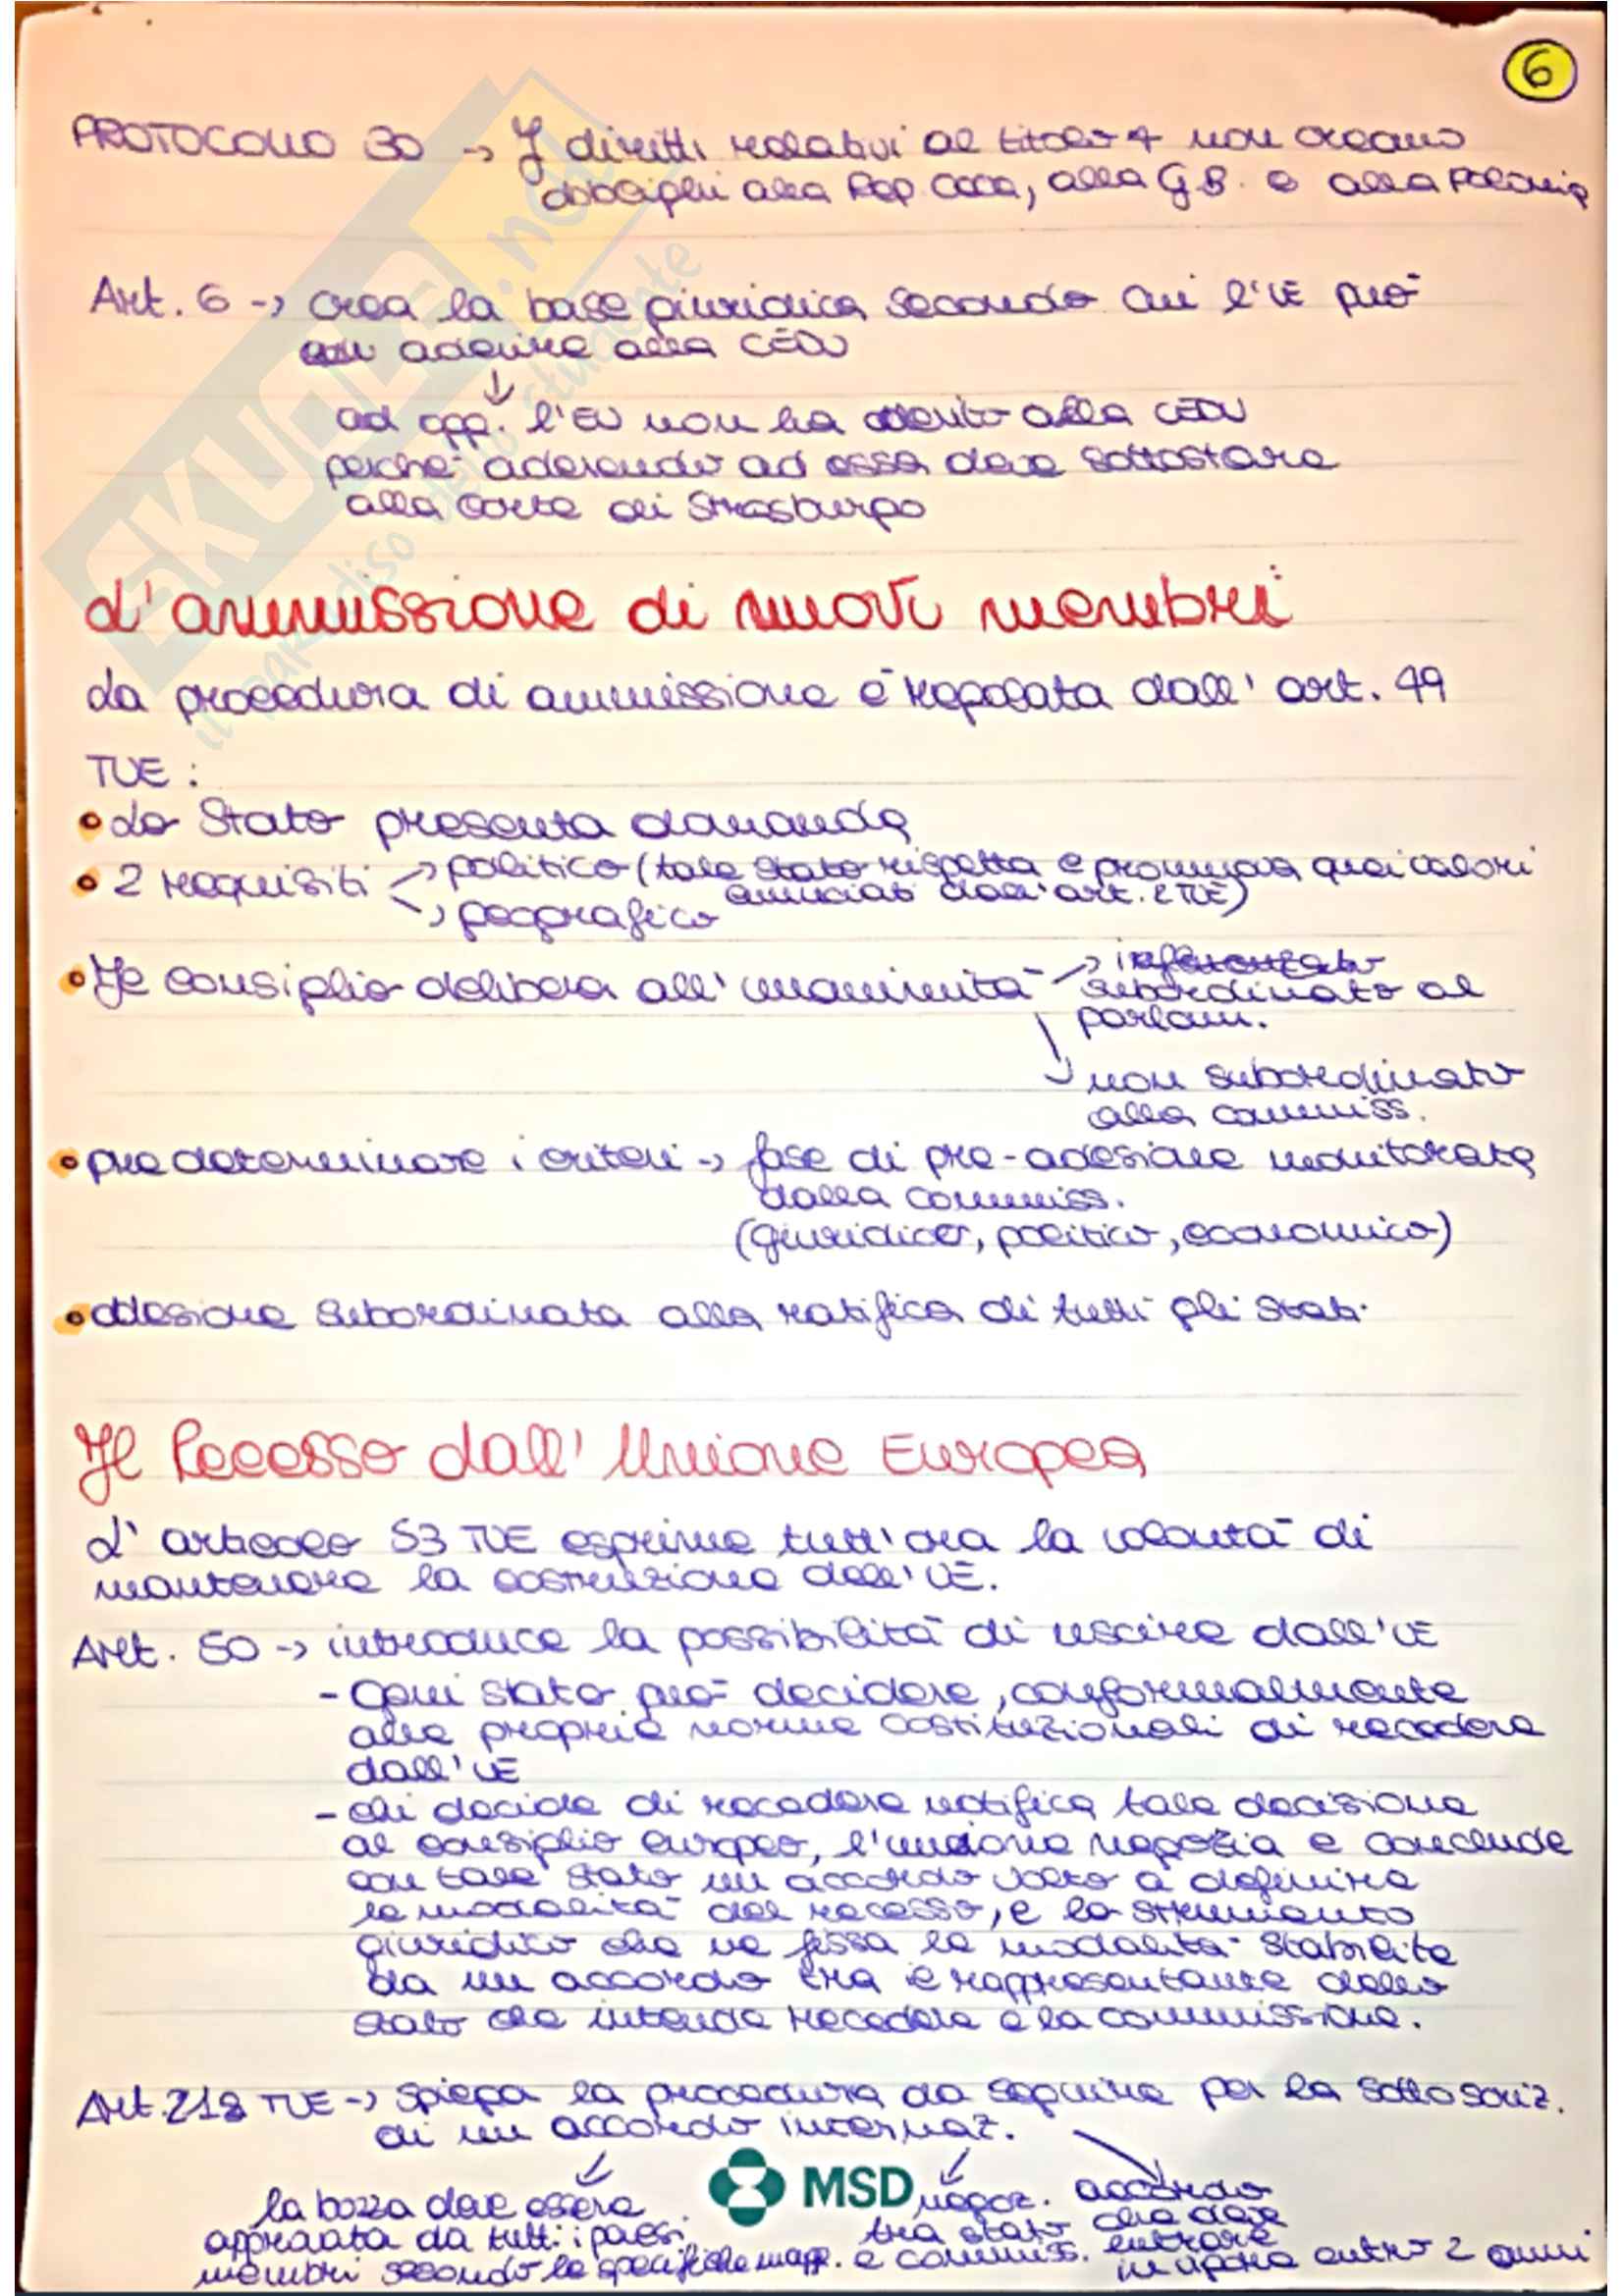 6
PROTOCOLLO 30 -> I diritti relativi al titolo 4 non creano
obblighi alla Rep. Ceca, alla G.B. e alla Polonia
Art. 6 -> crea la base giuridica secondo cui l'UE può
aderire alla CEDU
ad opp. l'EU non ha aderito alla CEDU
perché aderendo ad essa deve sottostare
alla corte di Strasburgo
L'ammissione di nuovi membri
La procedura di ammissione è regolata dall' art. 49
TUE :
• Lo Stato presenta domanda
• 2 requisiti -> politico (tale Stato rispetta e promuova quei valori
enunciati dall'art. 2 TUE)
-> geografico
• Il consiglio delibera all'unanimità -> subordinato al
parlam.
-> non subordinato
alla commiss.
• predeterminare i criteri -> fase di pre-adesione monitorata
dalla commiss.
(giuridico, politico, economico)
• adesione subordinata alla ratifica di tutti gli stati.
Il Recesso dall' Unione Europea
L' articolo 53 TUE esprime tutt'ora la volontà di
mantenere la costruzione dell'UE.
Art. 50 -> introduce la possibilità di uscire dall'UE
- Ogni stato può decidere, conformalmente
alle proprie norme costituzionali di recedere
dall'UE
- chi decide di recedere notifica tale decisione
al consiglio europeo, l'unione negozia e conclude
con tale stato un accordo volto a definire
le modalità del recesso, e lo strumento
giuridico che ne fissa le modalità stabilite
da un accordo tra il rappresentante dello
stato che intende recedere e la commissione.
Art. 218 TUE -> spiega la procedura da seguire per la sottoscriz.
di un accordo internaz.
la bozza deve essere
approvata da tutti i paesi
membri secondo le specifiche magg.
negoz.
tra stato
e commiss.
accordo
che deve
entrare
in vigore entro 2 anni
MSD
SKUOLA.net
il paradiso dello studente